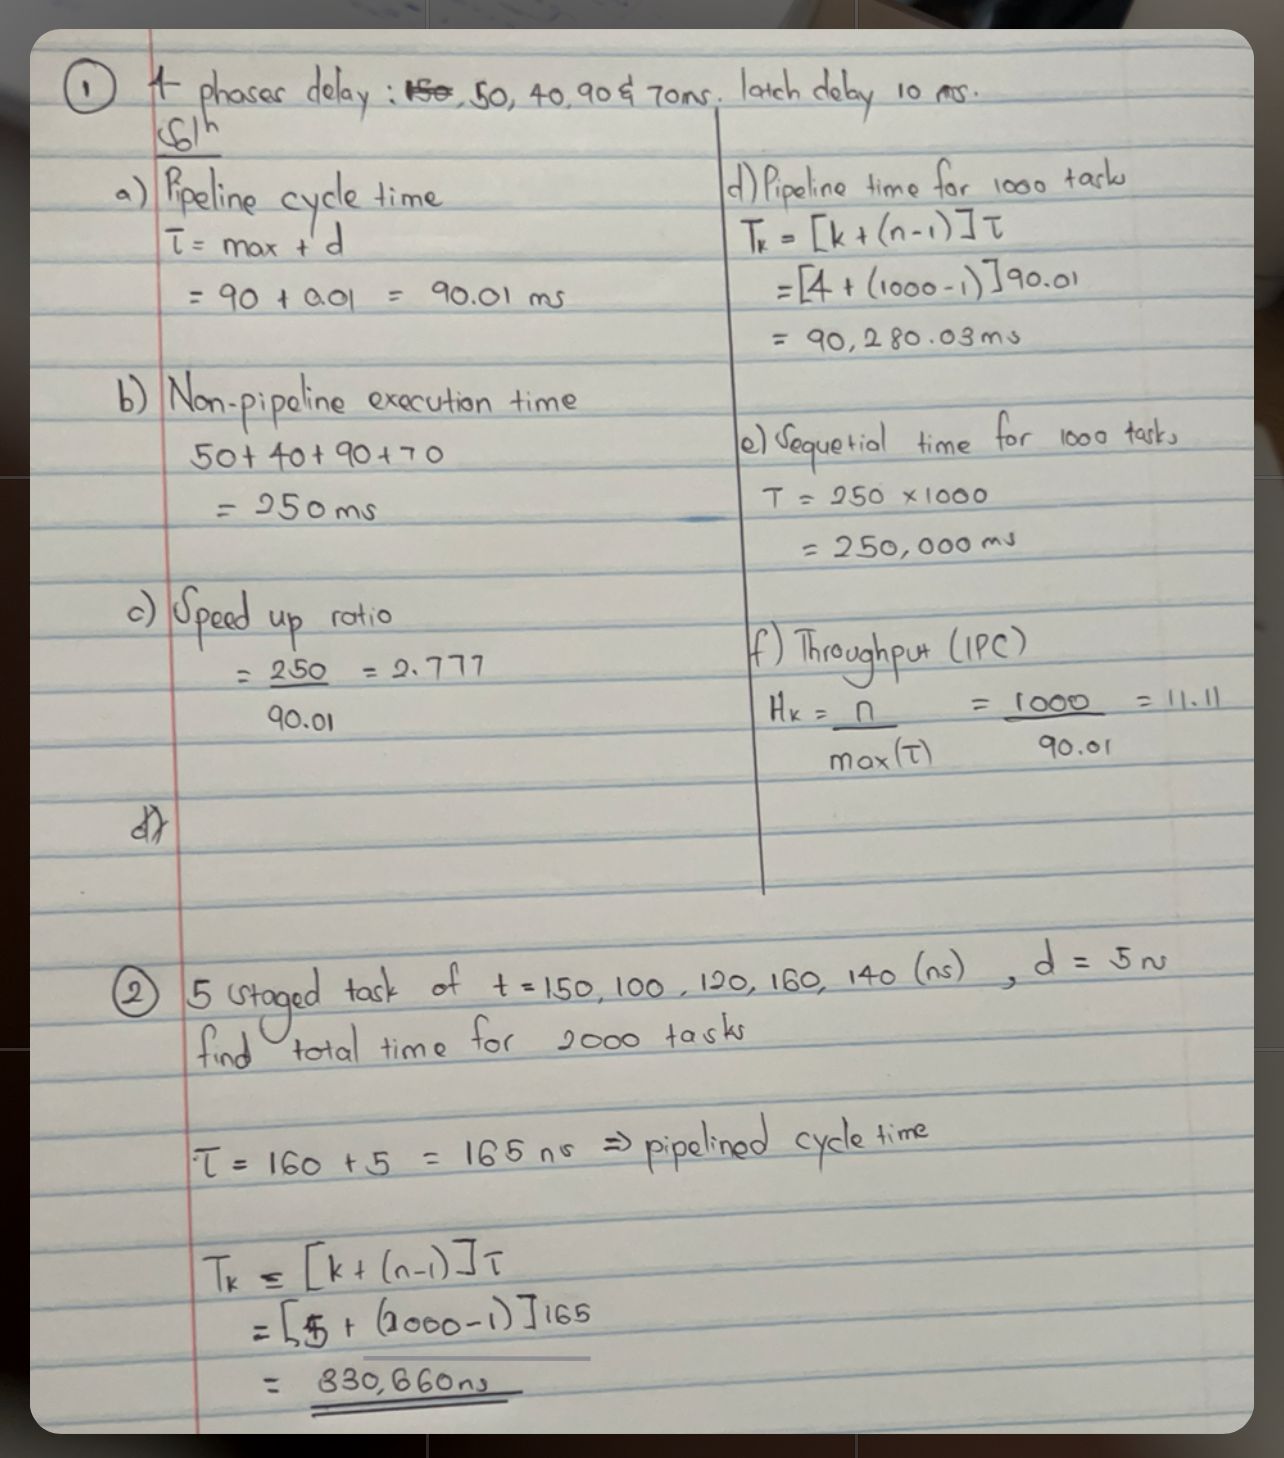 ① 4 phases delay : 150, 50, 40, 90 & 70ns. latch delay 10 ms.
Solⁿ
a) Pipeline cycle time
τ = max + d
= 90 + 0.01 = 90.01 ms
b) Non-pipeline execution time
50 + 40 + 90 + 70
= 250 ms
c) Speed up ratio
= 250 / 90.01 = 2.777
d)
d) Pipeline time for 1000 tasks
Tk = [k + (n-1)] τ
= [4 + (1000-1)] 90.01
= 90,280.03 ms
e) Sequetial time for 1000 tasks
T = 250 × 1000
= 250,000 ms
f) Throughput (IPC)
Hk = n / max(τ) = 1000 / 90.01 = 11.11
② 5 staged task of t = 150, 100, 120, 160, 140 (ns), d = 5 ns
find total time for 2000 tasks
τ = 160 + 5 = 165 ns ⇒ pipelined cycle time
Tk = [k + (n-1)] τ
= [5 + (2000-1)] 165
= 330,660 ns